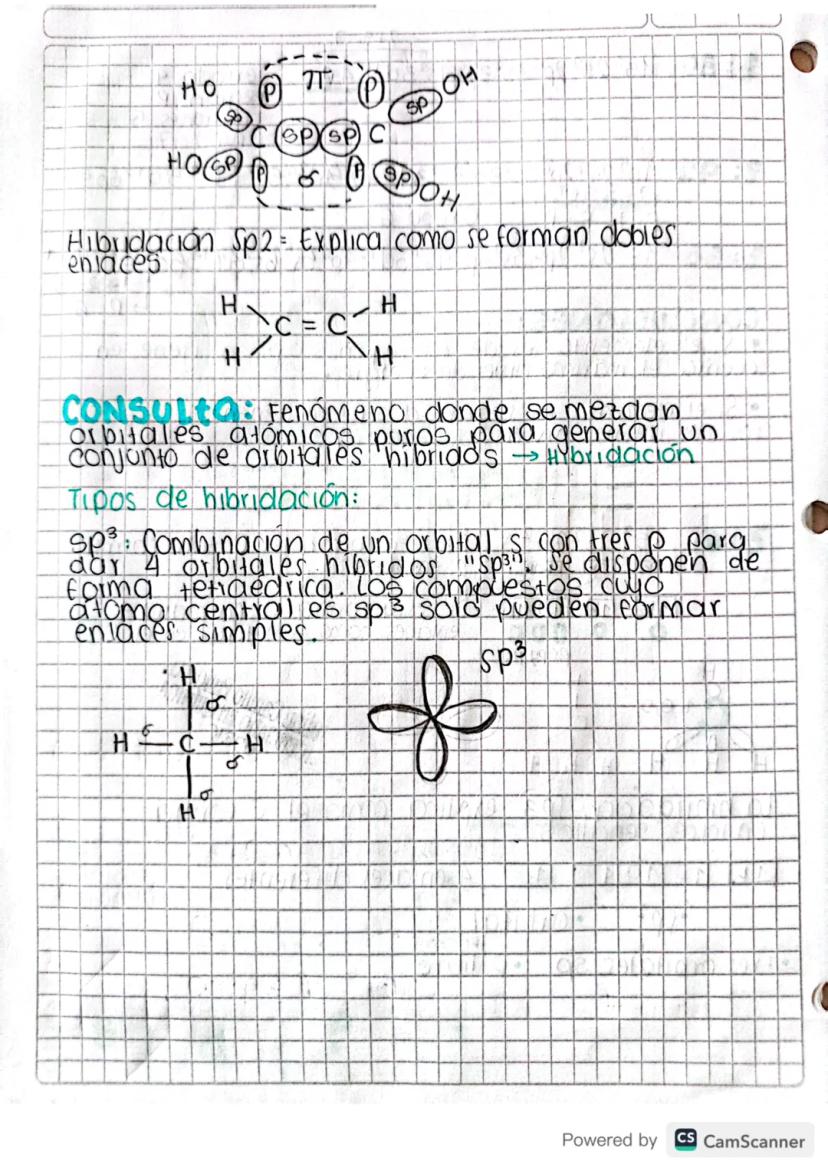 HO P π P OH
sp sp
C sp sp C
HO sp P σ P sp OH
Hibridación Sp2 = Explica como se forman dobles
enlaces
H H
C = C
H H
CONSULta: Fenómeno donde se mezclan
orbitales atómicos puros para generar un
conjunto de orbitales híbridos → Hybridación
Tipos de hibridación:
sp³: Combinación de un orbital s con tres p para
dar 4 orbitales híbridos "sp³". Se disponen de
forma tetraédrica. Los compuestos cuyo
átomo central es sp³ solo pueden formar
enlaces simples.
sp³
H
σ
H σ C H
σ
σ
H
Powered by CS CamScanner